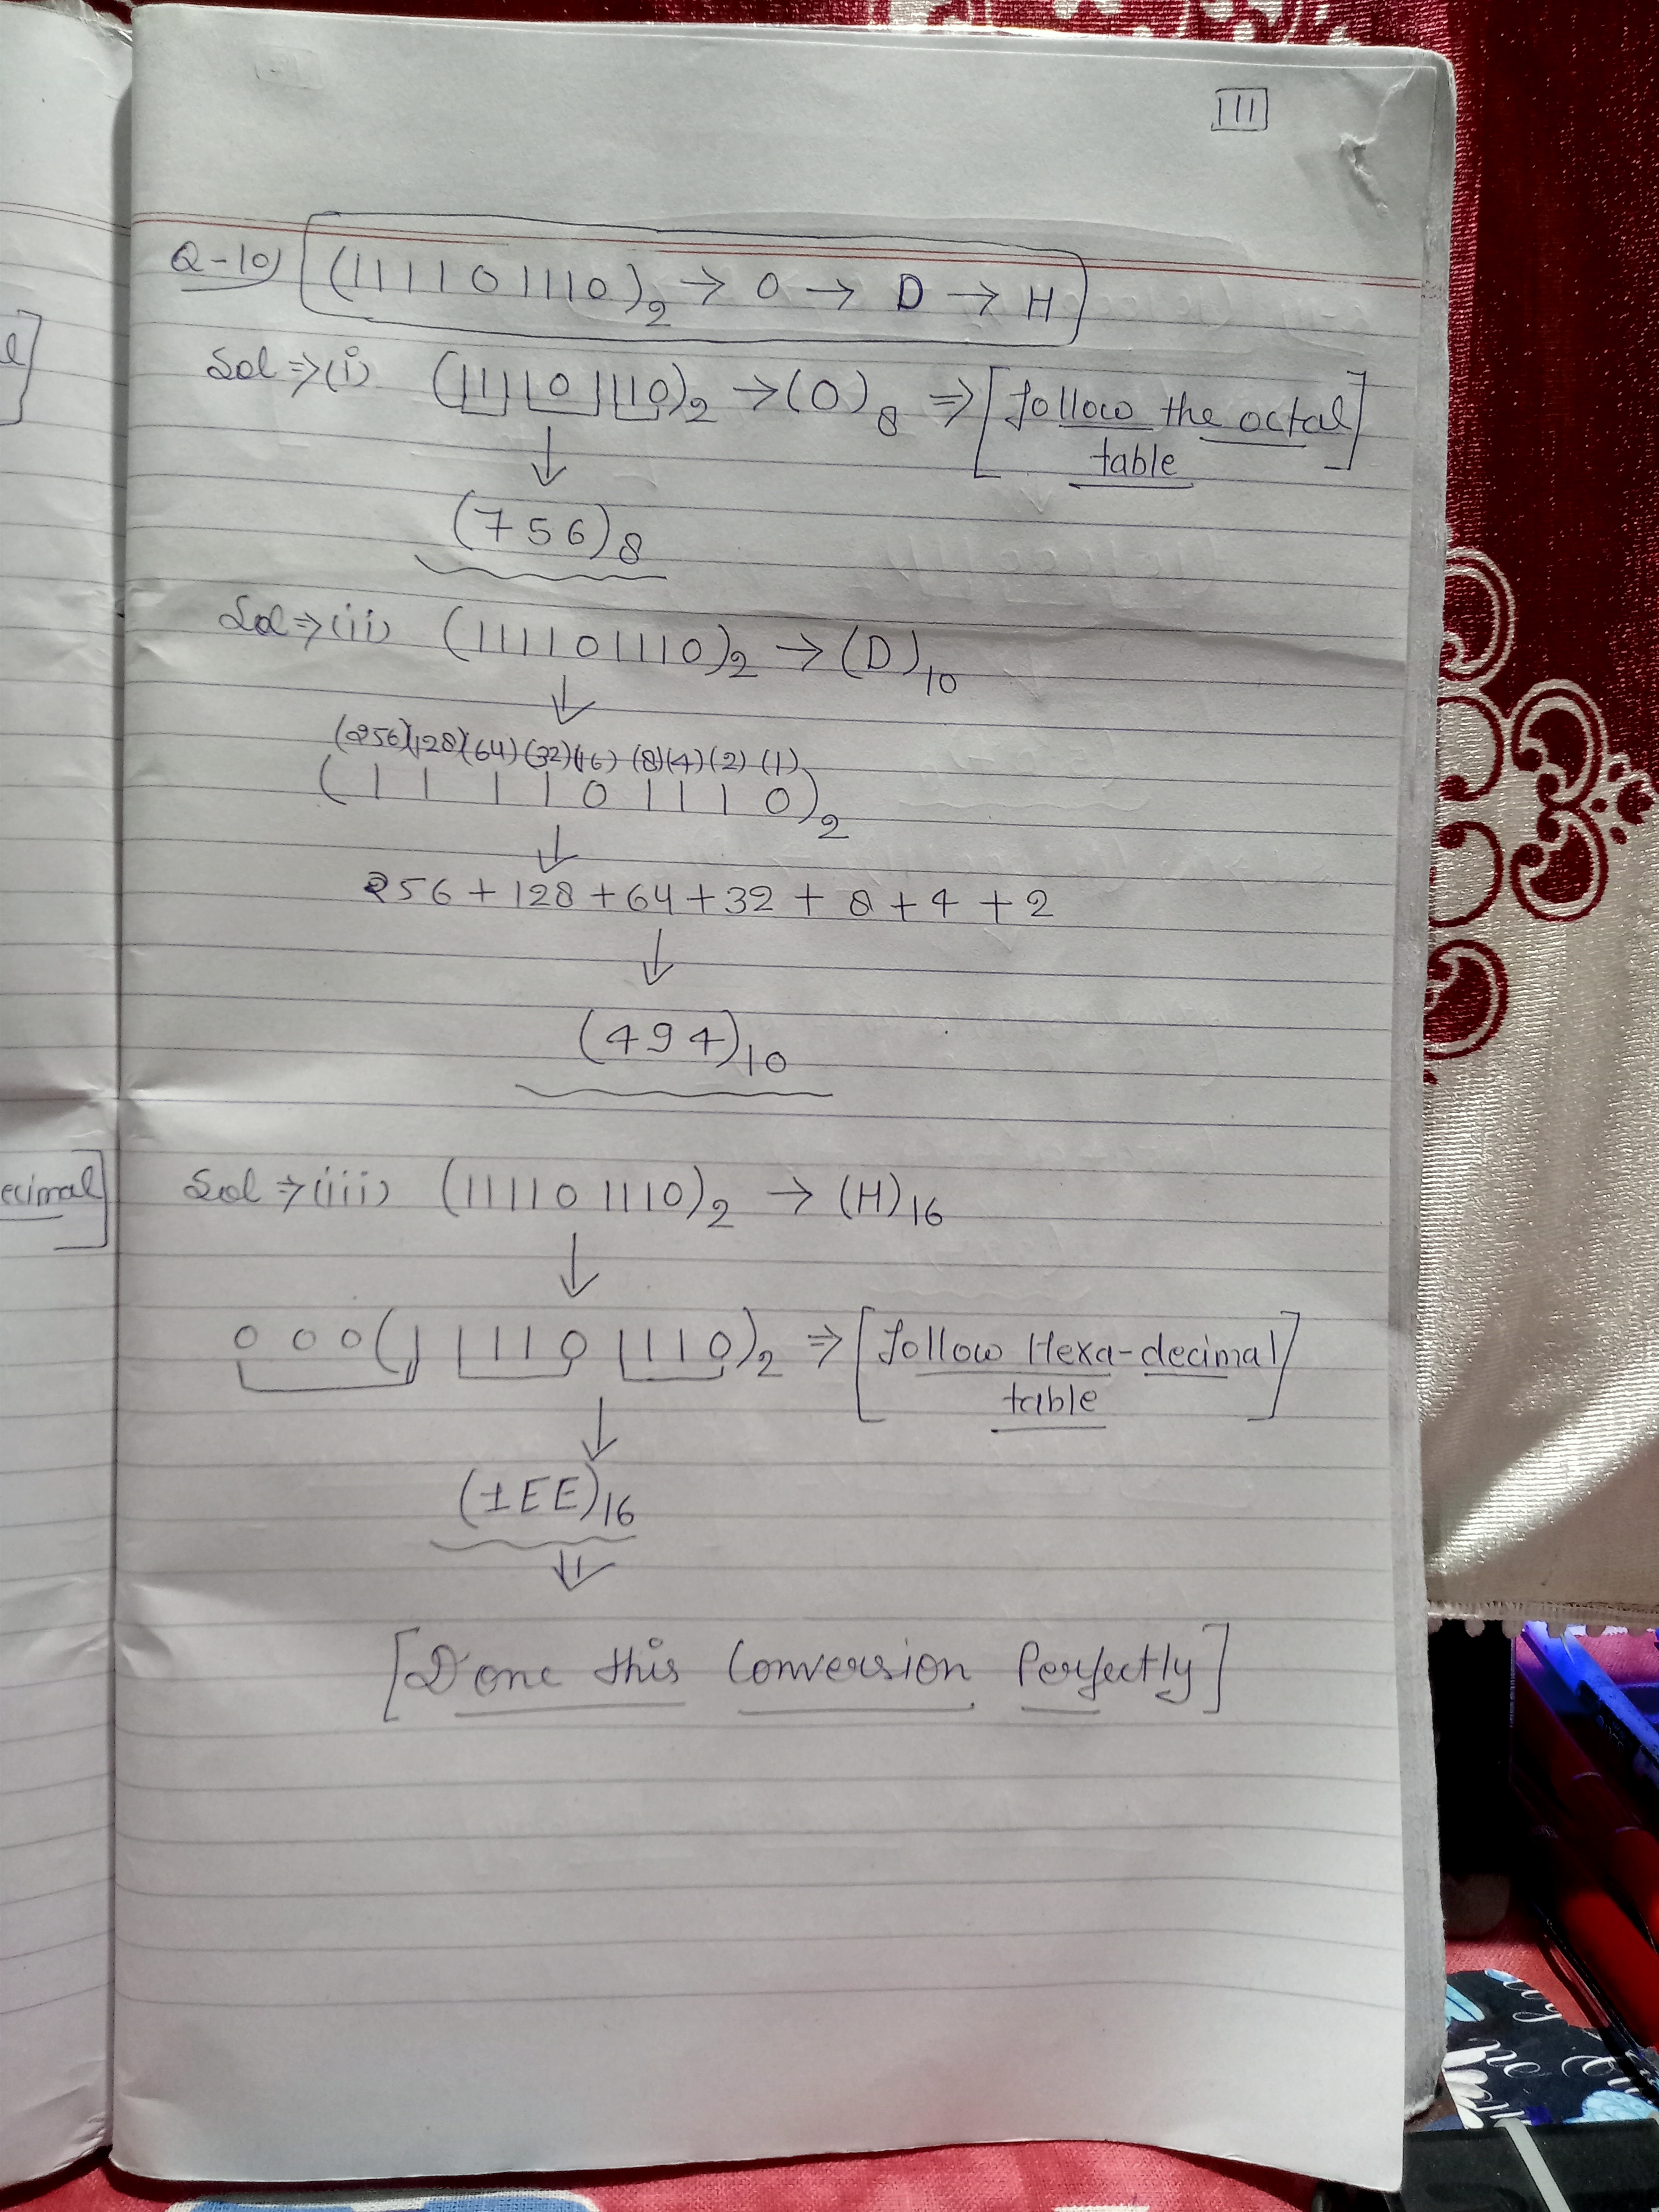 111
Q-10) (111101110)₂ → O → D → H
Sol ⇒ (i) (111101110)₂ → (O)₈ ⇒ [follow the octal
table]
↓
(756)₈
Sol ⇒ (ii) (111101110)₂ → (D)₁₀
↓
(256)(128)(64)(32)(16) (8)(4)(2) (1)
(1 1 1 1 0 1 1 1 0)₂
↓
256 + 128 + 64 + 32 + 8 + 4 + 2
↓
(494)₁₀
ecimal]
Sol ⇒ (iii) (111101110)₂ → (H)₁₆
↓
000(1 1110 1110)₂ ⇒ [follow Hexa-decimal
table]
↓
(1EE)₁₆
⇓
[Done this Conversion Perfectly]